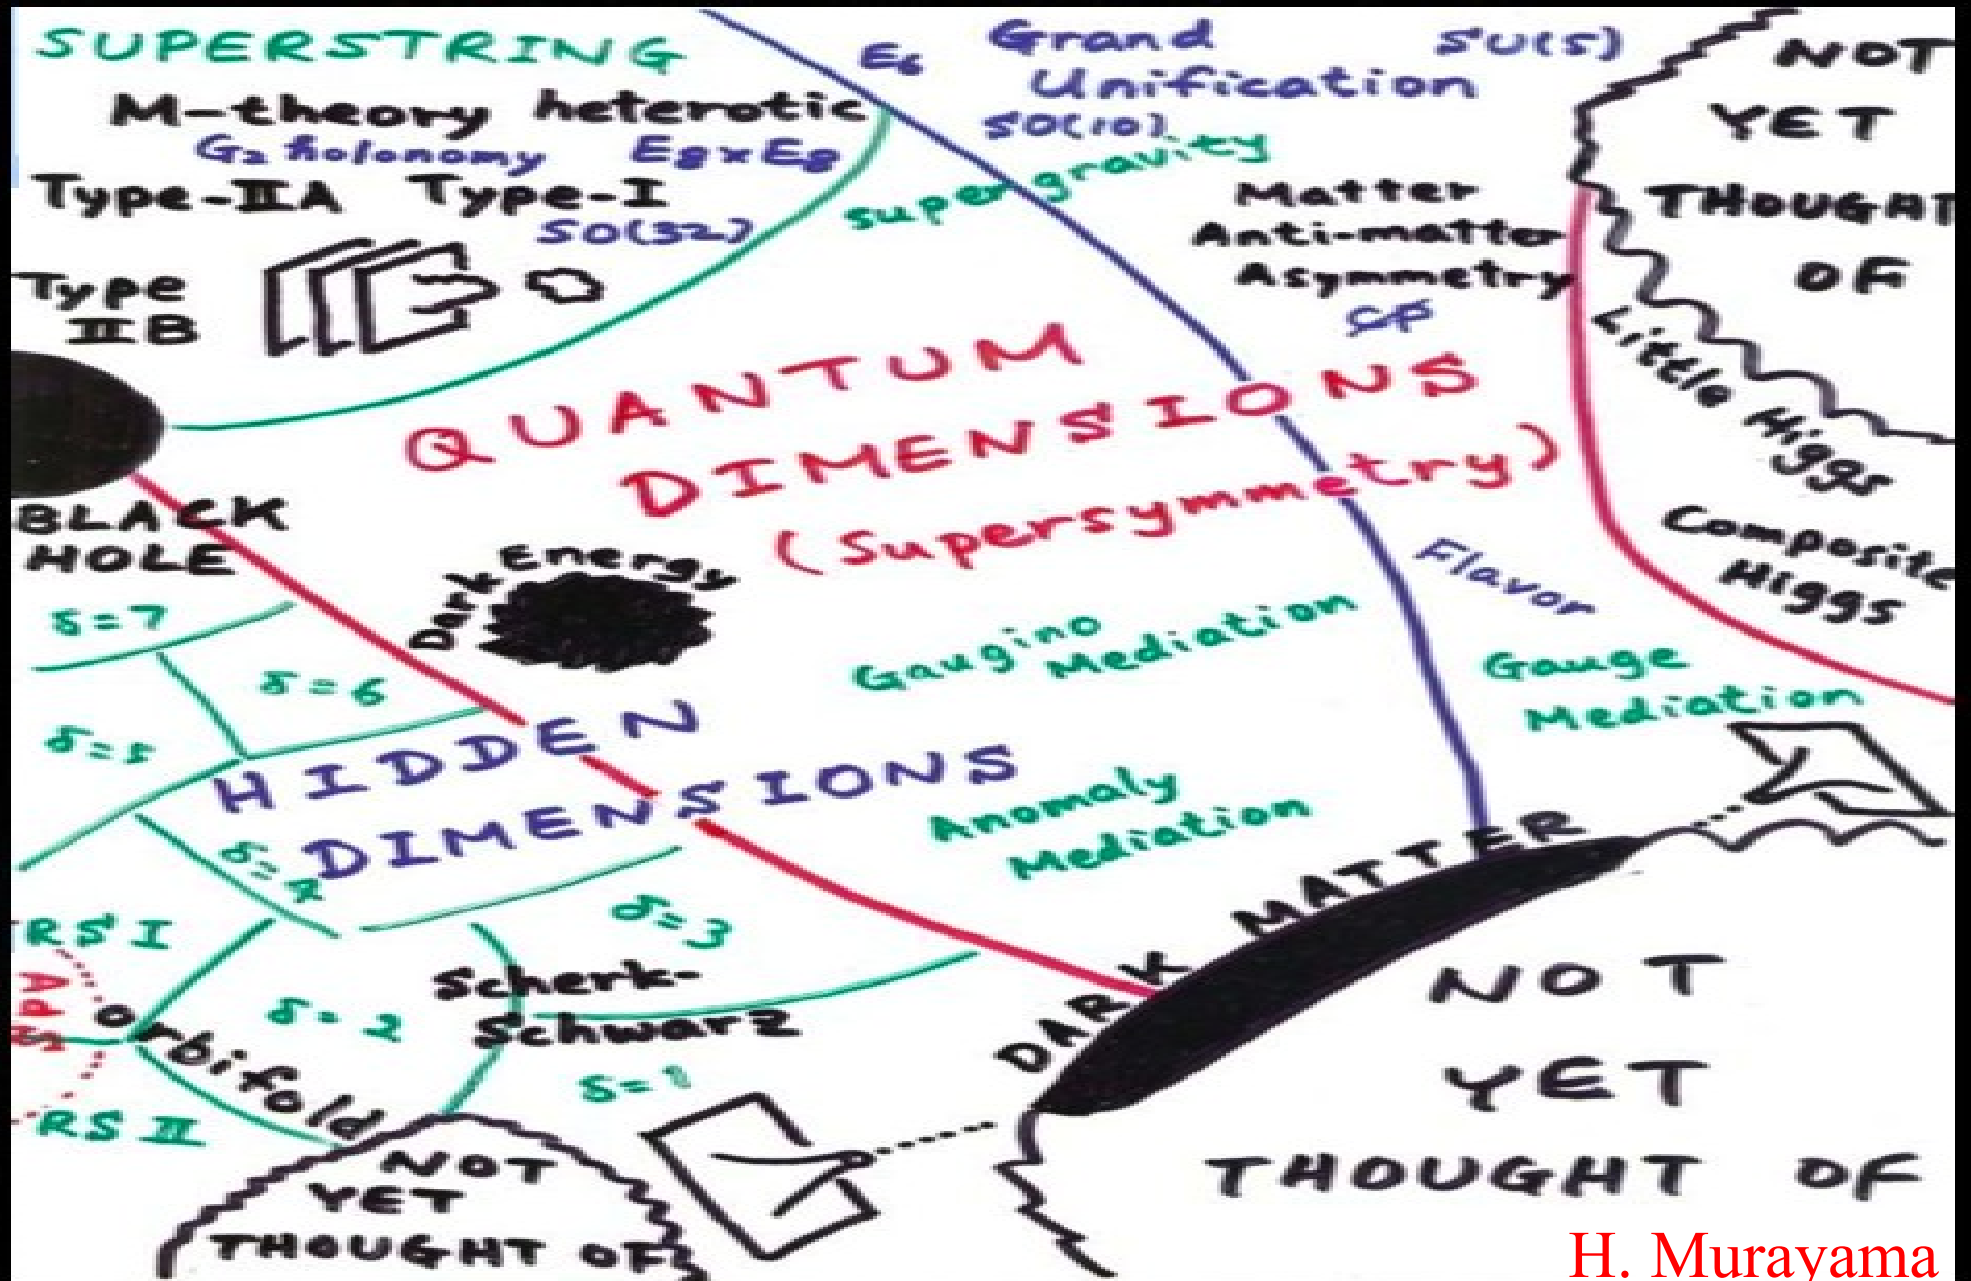 SUPERSTRING
M-theory heterotic
G₂ holonomy E₈×E₈
Type-IIA Type-I
SO(32)
Type
IIB
E₆
Grand
Unification
SU(5)
SO(10)
supergravity
Matter
Anti-matter
Asymmetry
CP
NOT
YET
THOUGHT
OF
Little Higgs
Composite
Higgs
QUANTUM
DIMENSIONS
(Supersymmetry)
BLACK
HOLE
Dark Energy
Flavor
Gaugino
Mediation
Gauge
Mediation
Anomaly
Mediation
δ=7
δ=6
δ=5
HIDDEN
DIMENSIONS
δ=
δ=3
RS I
AdS
orbifold
δ=2
Scherk-
Schwarz
δ=1
RS II
DARK MATTER
NOT
YET
THOUGHT OF
NOT
YET
THOUGHT OF
H. Murayama